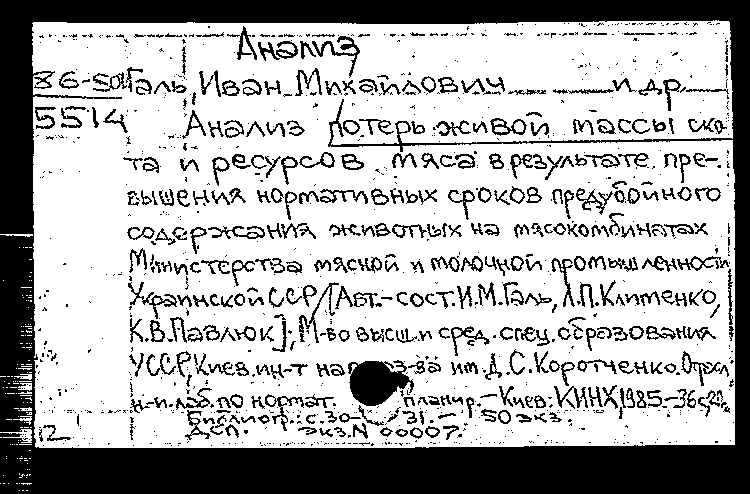 Анализ
86-504 Галь, Иван Михайлович и др.
5514 Анализ потерь живой массы ско-
та и ресурсов мяса в результате пре-
вышения нормативных сроков предубойного
содержания животных на мясокомбинатах
Министерства мясной и молочной промышленности
Украинской ССР / [Авт.-сост. И.М. Галь, Л.П. Клименко,
К.В. Павлюк]; М-во высш. и сред. спец. образования
УССР, Киев. ин-т нар. хоз-ва им. Д.С. Коротченко. Отрасл.
н.-и. лаб. по нормат. планир. - Киев: КИНХ, 1985. - 36 с.,
Библиогр.: с. 30-31. - 50 экз.
12 ДСП. Экз. N 00007.